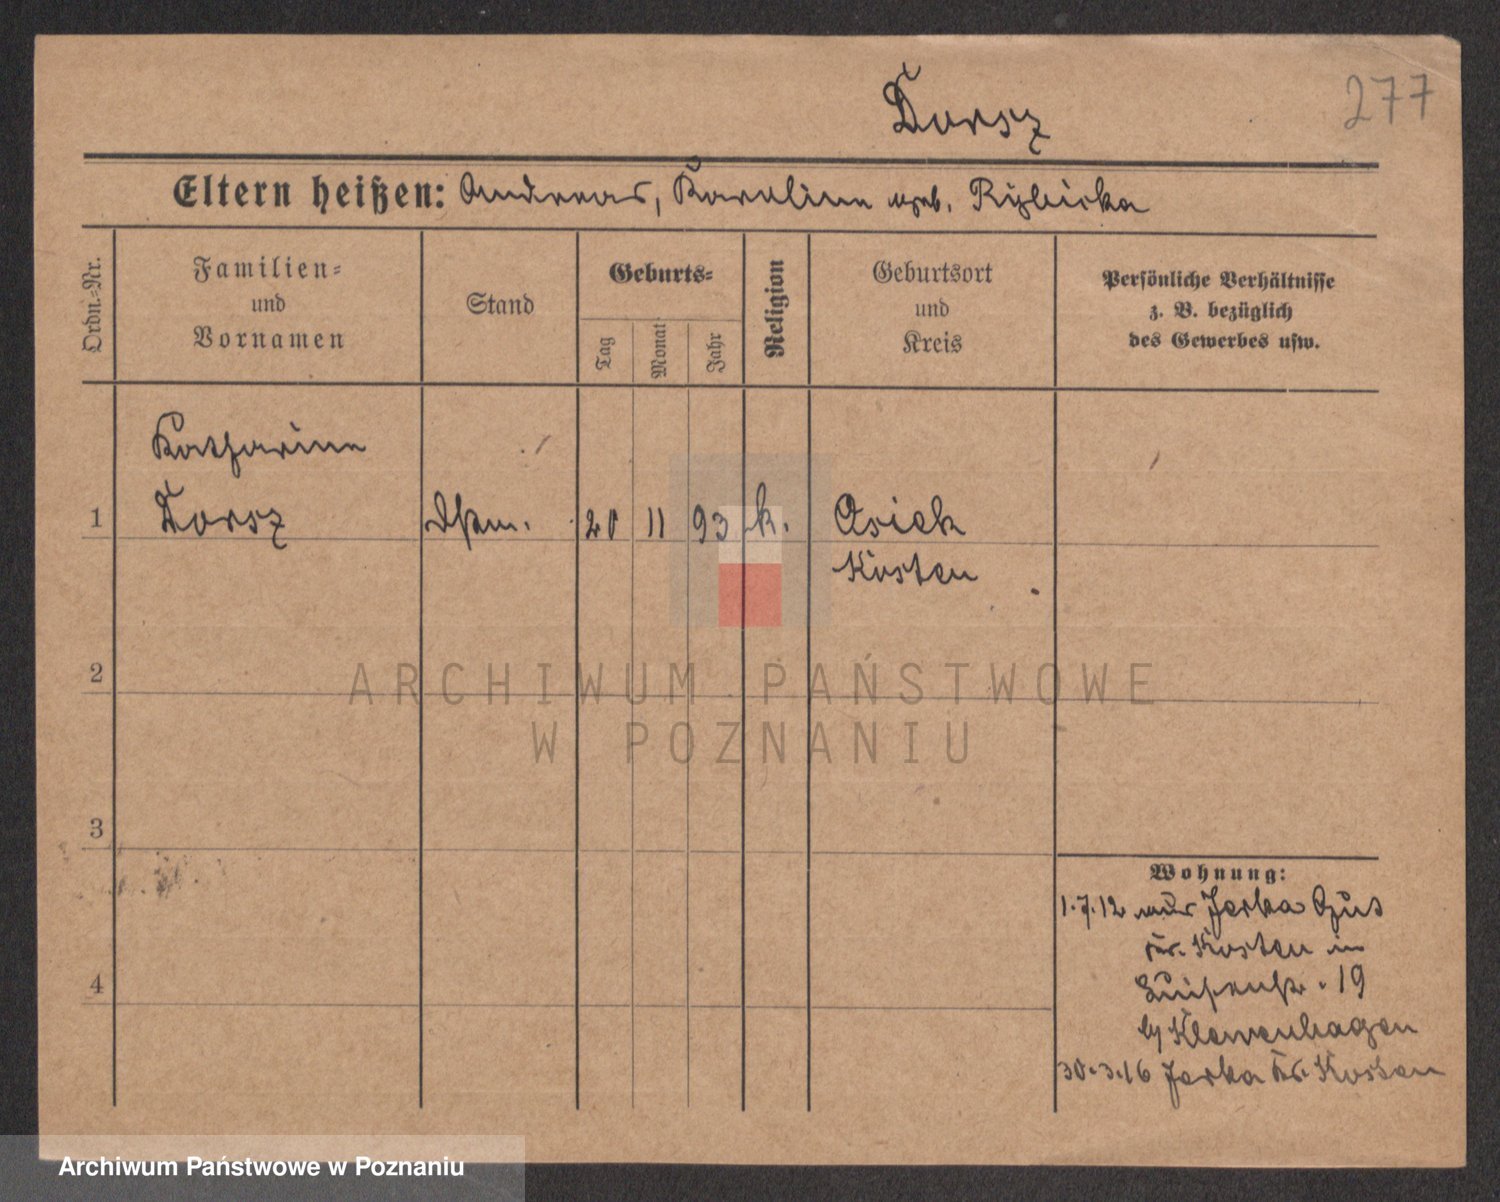 Dorsz
277
Eltern heißen: Andreas, Karoline geb. Rybicka
Ordn.-Nr.
Familien-
und
Vornamen
Stand
Geburts-
Tag
Monat
Jahr
Religion
Geburtsort
und
Kreis
Persönliche Verhältnisse
z. B. bezüglich
des Gewerbes usw.
Katharine
1 Dorsz Dstm. 20 11 93 k. Osiek
Kosten
2
3
4
Wohnung:
1.7.12 aus Jerka Gut
Kr. Kosten in
Luisenstr. 19
b/ Klewenhagen
30.3.16 Jerka Kr. Kosten
ARCHIWUM PAŃSTWOWE
W POZNANIU
Archiwum Państwowe w Poznaniu